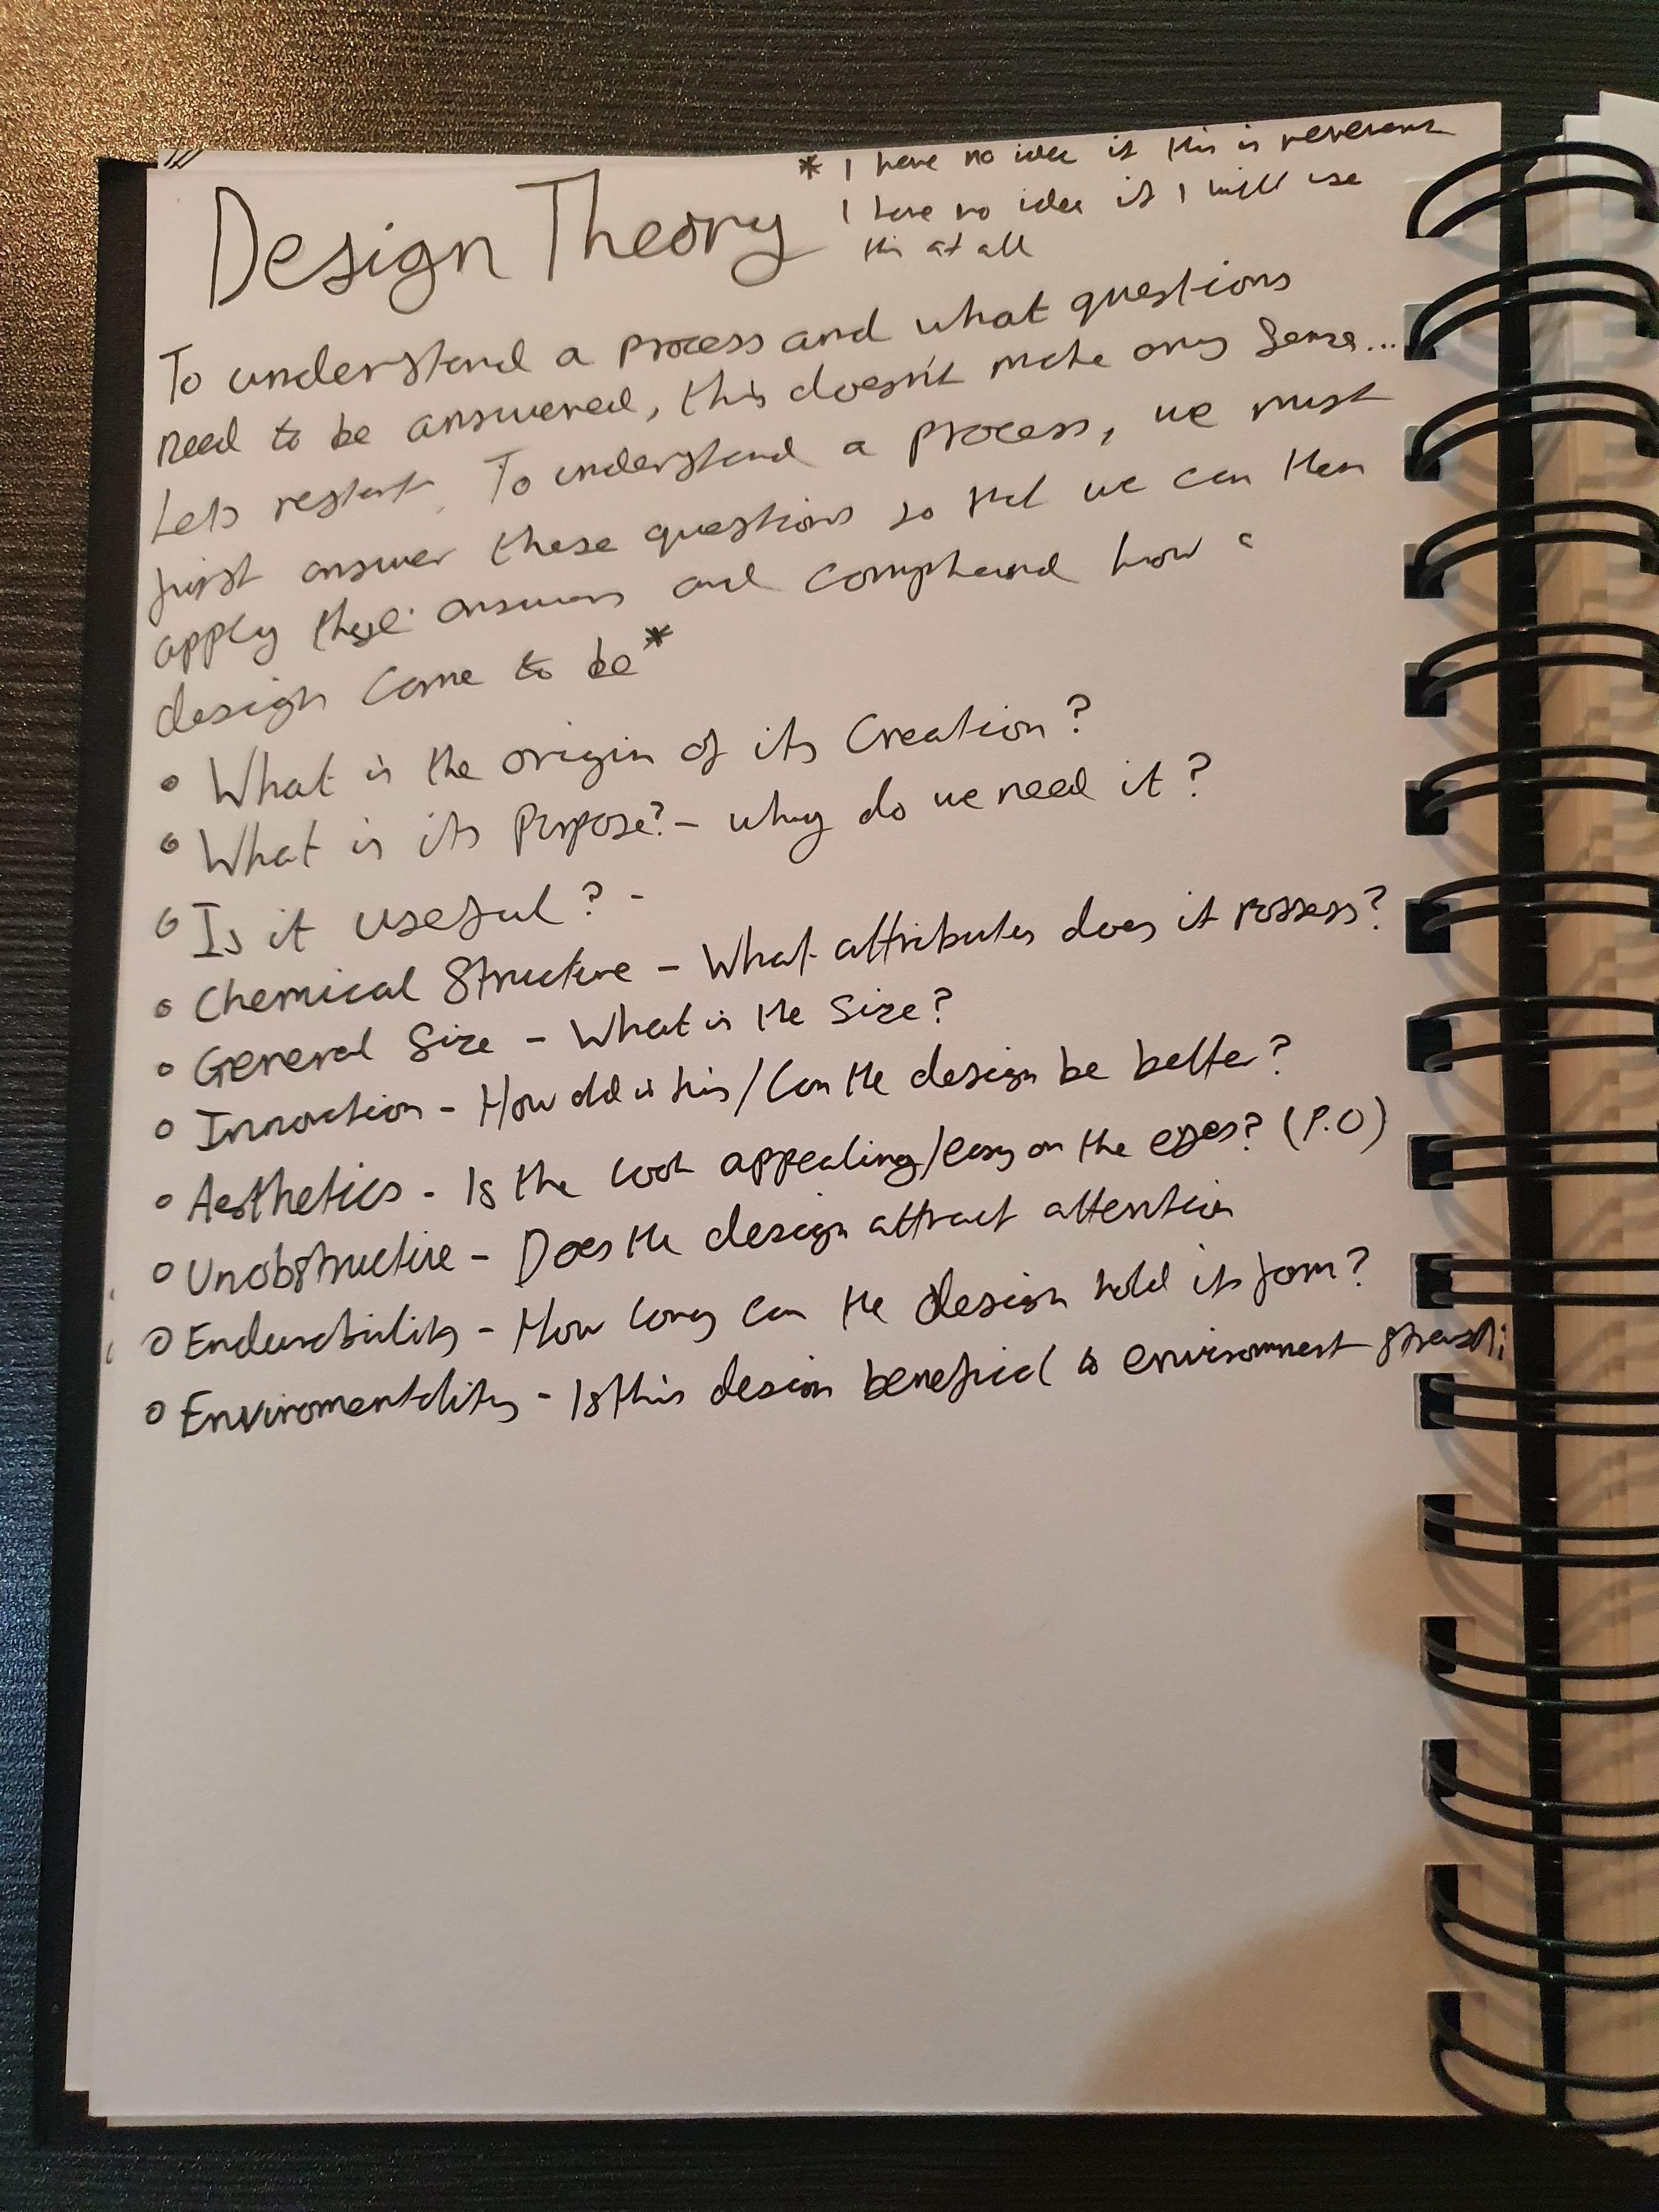 Design Theory
* I have no idea if this is relevant
I have no idea if I will use
this at all
To understand a process and what questions
need to be answered, this doesn't make any sense...
Lets restart. To understand a process, we must
first answer these questions so that we can then
apply these answers and comphend how a
design came to be*
• What is the origin of its Creation?
• What is its Purpose? - why do we need it?
• Is it useful? -
• Chemical Structure - What attributes does it possess?
• General Size - What is the Size?
• Innovation - How old is this/Can the design be better?
• Aesthetics - Is the look appealing/easy on the eyes? (P.O)
• Unobstructive - Does the design attract attention
• Endurability - How long can the design hold its form?
• Enviromentality - Is this design benefical to environment